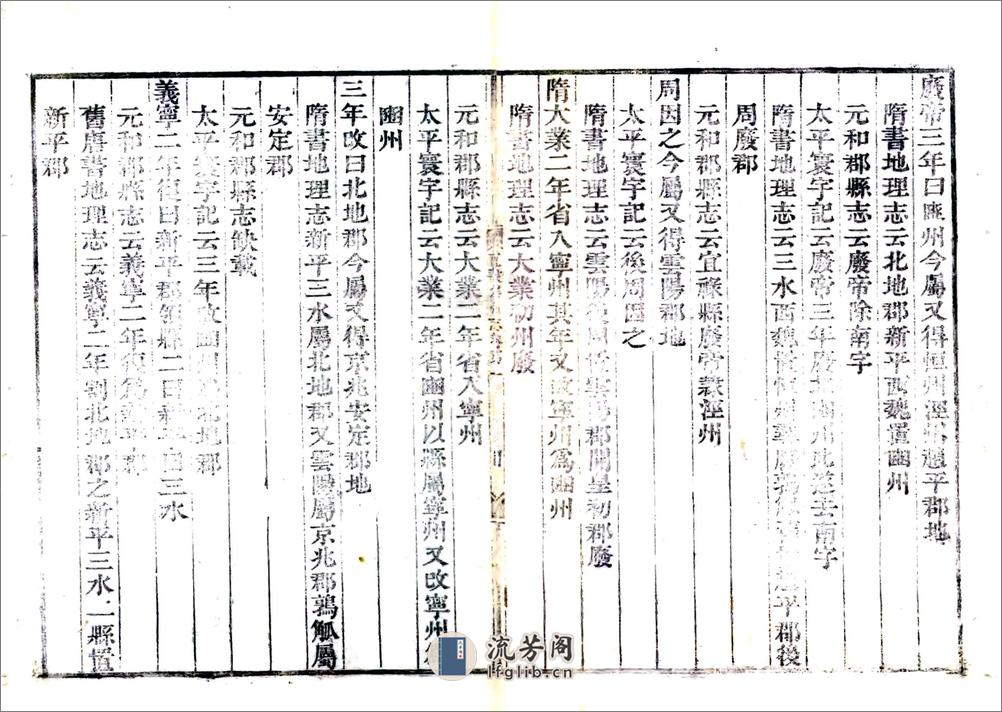 廢帝三年曰豳州今屬又得恒州涇州趙平郡地
隋書地理志云北地郡新平西魏置豳州
元和郡縣志云廢帝除南字
太平寰宇記云廢帝三年廢北豳州此遂去南字
隋書地理志云三水西魏置恒州尋廢鶉觚平郡後
周廢郡
元和郡縣志云宜祿縣廢帝隸涇州
周因之今屬又得雲陽郡地
太平寰宇記云後周因之
隋書地理志云雲陽後周置雲陽郡開皇初郡廢
隋大業二年省入寧州其年又改寧州爲豳州
隋書地理志云大業初州廢
元和郡縣志云大業二年省入寧州
太平寰宇記云大業二年省豳州以縣屬寧州又改寧州爲
豳州
三年改曰北地郡今屬又得京兆安定郡地
隋書地理志新平三水屬北地郡又雲陽屬京兆郡鶉觚屬
安定郡
元和郡縣志缺載
太平寰宇記云三年改豳州爲北地郡
義寧二年復曰新平郡領縣二曰新平曰三水
元和郡縣志云義寧二年復爲新平郡
舊唐書地理志云義寧二年割北地郡之新平三水二縣置
新平郡
流芳阁
lfglib.cn